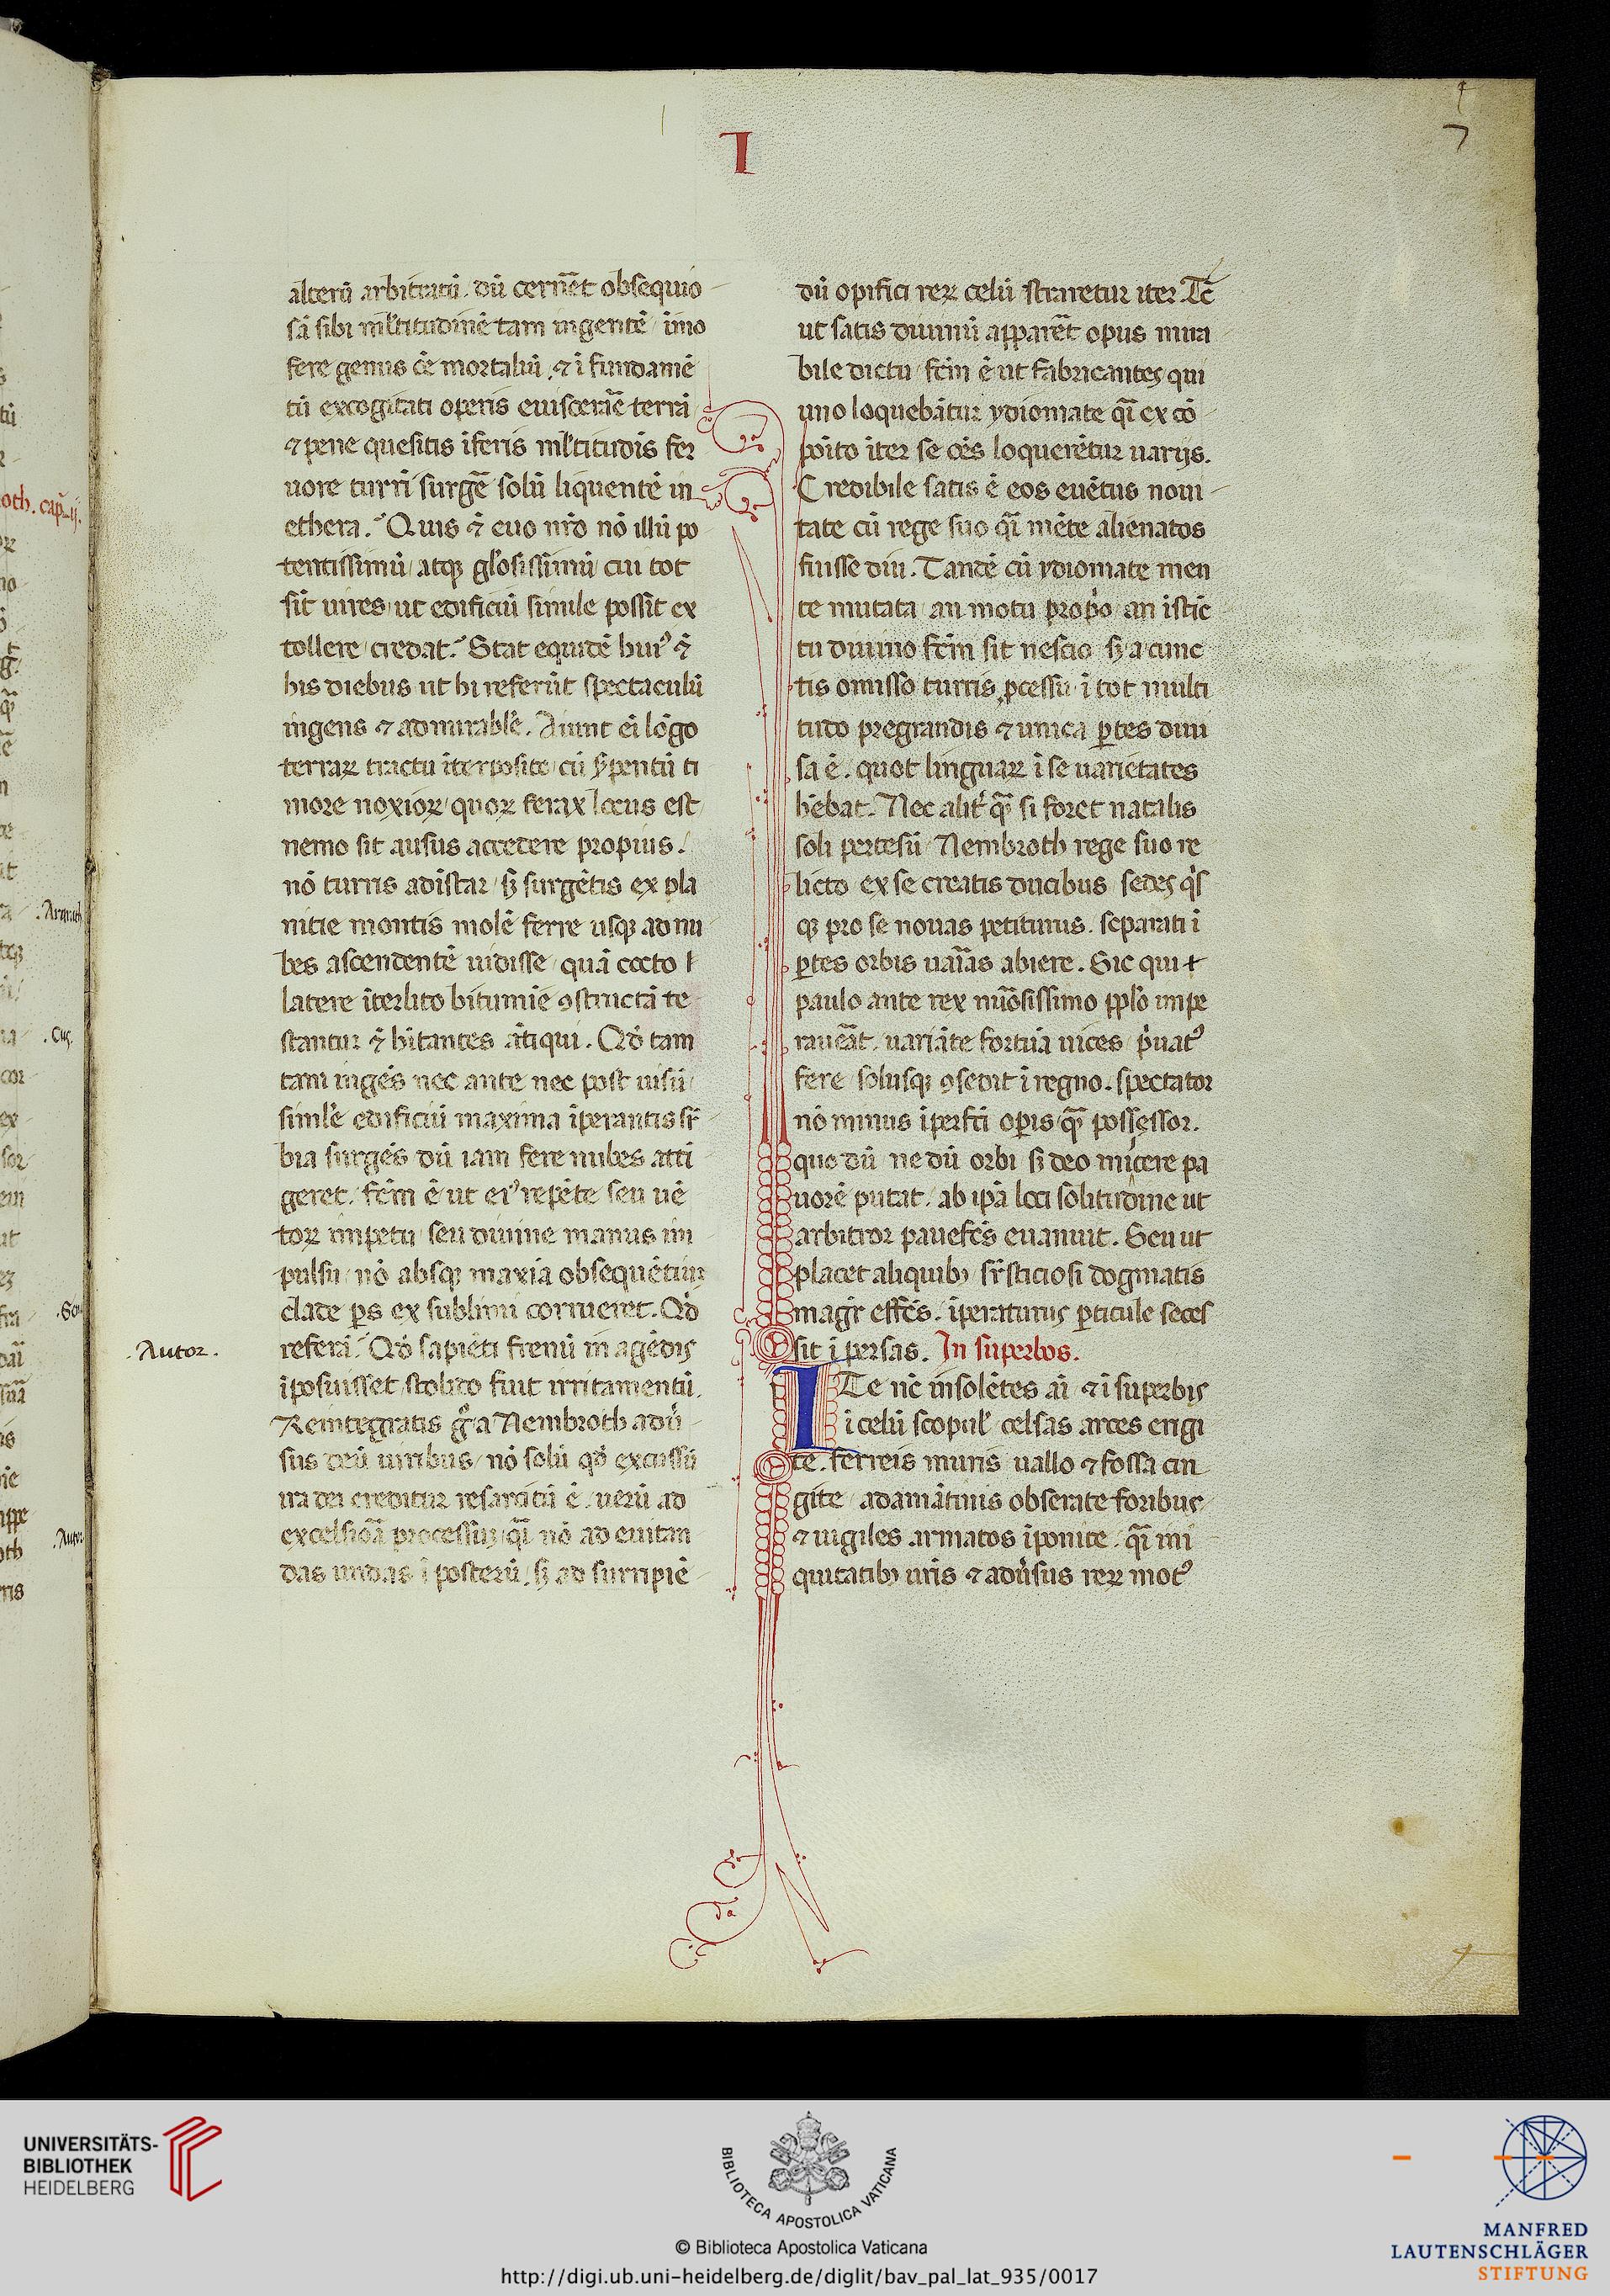 I
7
alterū arbitratū. dū cernēt obsequio
sā sibi ml̄titudinē tam ingentē / imo
fere genus ōē mortaliū, ⁊ ī fundamē
tū excogitati operis euiscerāē terrā
⁊ pene quesitis īferis ml̄titudīs fer
uore turrī surgē solū liquentē in
ethera. Quis ⁊̄ euo nr̄o nō illū po
tentissimū / atqꝫ gl̄osissimū / cui tot
sīt uires / ut edificiū simile possīt ex
tollere / credat. Stat equidē huiꝰ ⁊̄
his diebus ut hi referūt spectaculū
ingens ⁊ admirabl̄e. Aiunt ei lōgo
terraꝝ tractu īterposito / cū s̄pentū ti
more noxioꝝ / quoꝝ ferax locus est
nemo sit ausus accedere propius.
nō turris ad īstar / sꝫ surgētis ex pla
nitie montis molē ferre usqꝫ ad nu
bes ascendentē uidisse / quā cocto l
latere īterlito bitumīe ꝯstructā te
stantur ⁊̄ hītantes ātiqui. Qđ tam
tam ingēs nec ante nec post uisū
simlē edificiū maxima īperantis sr̄
bia surgēs dū iam fere nubes atti
geret. fc̄m ē ut eiꝰ repēte seu uē
toꝝ impetu / seu diuine manus im
pulsu / nō absqꝫ maxīa obsequētiuꝫ
clade ꝑs ex sublimi corrueret. Qđ
referā. Qđ sapiēti frenū in agēdis
īposuisset / stolido fuit irritamentū.
Reintegratis gͦ a Nembroth adū
sus deū uiribus / nō solū qđ excussū
ira dei creditur resarcitū ē / uerū ad
excelsiōā processū / qī nō ad euitan
das undas ī posterū / sꝫ ad surripiē
.Autor.
dū opifici reꝝ celū straretur iter. Tc̄
ut satis diuinū apparēt opus mira
bile dictu / fc̄m ē ut fabricantes qui
uno loquebātur ydiomate qī ex cō
poīto īter se oēs loquerētur uarijs.
Credibile satis ē eos euētus noui
tate cū rege suo qī mēte alienatos
fuisse diu. Tandē cū ydiomate men
te mutata / an motu propͦo an īstīc
tu diuino fc̄m sit nescio / sꝫ a cunc
tis omisso turris ꝓcessu / ī tot multi
tudo pregrandis ⁊ unica ꝑtes diui
sa ē / quot linguaꝝ ī se uarietates
hēbat. Nec alit̄ qᷓ si foret natalis
soli pertesū / Nembroth rege suo re
licto ex se creatis ducibus / sedes qͥs
qꝫ pro se nouas petiturus. separati ī
ꝑtes orbis uaīas abiere. Sic qui
paulo ante rex nūosissimo ppl̄o impe
raueāt / uariāte fortūa uices / pͥuatꝰ
fere / solusqꝫ ꝯsedit ī regno. spectator
nō minus īperfc̄i oꝑis / qᷓ possessor.
quo dū ne dū orbi sꝫ deo mīcere pa
uorē putat / ab ip̄a loci solitudine ut
arbitror pauefc̄s euanuit. Seu ut
placet aliquibꝫ sr̄sticiosi dogmatis
magr̄ effc̄s. īperaturus ꝑticule secef
sit ī persas. In superbos.
ITe nc̄ insolētes aī ⁊ ī superbis
ī celū scopul' celsas arces erigi
te. ferreis muris uallo ⁊ fossa cin
gite / adamātinis obserate foribus
⁊ uigiles armatos īponite. qī ini
quitatibꝫ uris ⁊ adūsus reꝝ motꝰ
UNIVERSITÄTS-
BIBLIOTHEK
HEIDELBERG
BIBLIOTECA APOSTOLICA VATICANA
© Biblioteca Apostolica Vaticana
http://digi.ub.uni-heidelberg.de/diglit/bav_pal_lat_935/0017
MANFRED
LAUTENSCHLÄGER
STIFTUNG